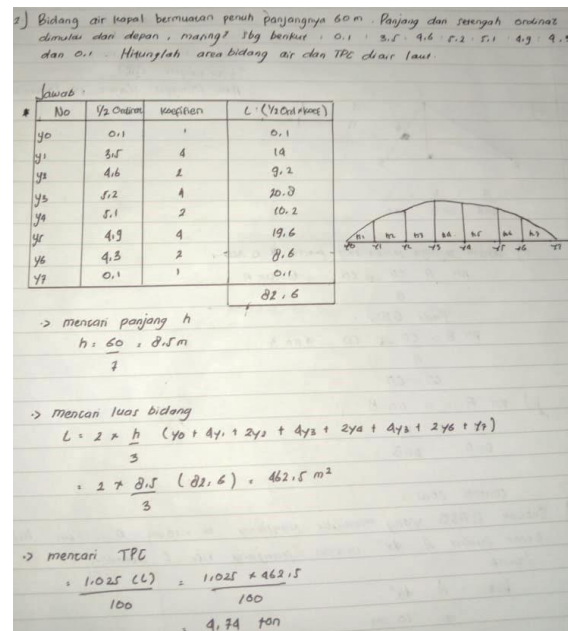 2) Bidang air kapal bermuatan penuh panjangnya 60 m. Panjang dan setengah ordinat
dimulai dari depan, masing² sbg berikut, 0.1, 3.5, 4.6, 5.2, 5.1, 4.9, 4.3
dan 0.1. Hitunglah area bidang air dan TPC di air laut.
Jawab:
* No 1/2 Ordinat Koefisien L. (1/2 Ord x Koef)
y0 0.1 1 0.1
y1 3.5 4 14
y2 4.6 2 9,2
y3 5,2 4 20.8
y4 5.1 2 10.2
y5 4,9 4 19,6
y6 4,3 2 8,6
y7 0,1 1 0.1
82,6
h1 h2 h3 h4 h5 h6 h7
y0 y1 y2 y3 y4 y5 y6 y7
-> mencari panjang h
h = 60 = 8.5 m
7
-> mencari luas bidang
L = 2 x h (y0 + 4y1 + 2y2 + 4y3 + 2y4 + 4y3 + 2y6 + y7)
3
= 2 x 8.5 (82,6) = 462,5 m²
3
-> mencari TPC
= 1.025 (L) = 1,025 x 462,5
100 100
= 4,74 ton